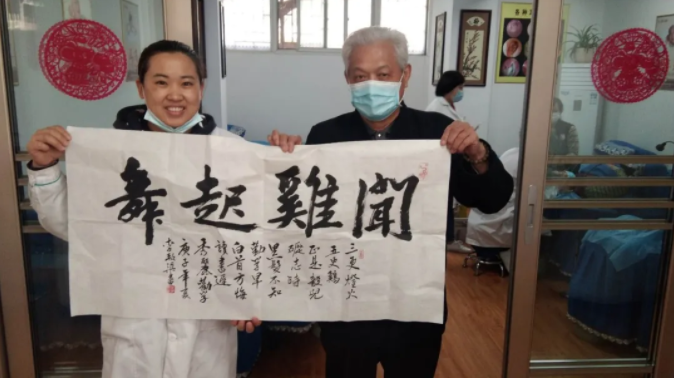 聞雞起舞
三更燈火
五更鷄
正是男兒
志時
黑髮不知
勤學早
白首方悔
讀書遲
勤學
庚子年